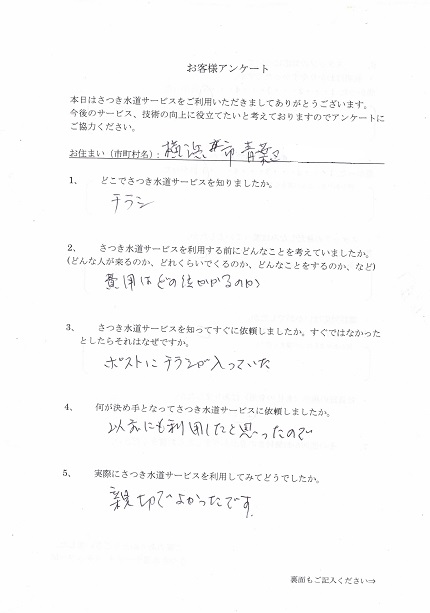 お客様アンケート
本日はさつき水道サービスをご利用いただきましてありがとうございます。
今後のサービス、技術の向上に役立てたいと考えておりますのでアンケートに
ご協力ください。
お住まい（市町村名）：横浜市青葉区
1、 どこでさつき水道サービスを知りましたか。
チラシ
2、 さつき水道サービスを利用する前にどんなことを考えていましたか。
(どんな人が来るのか、どれくらいでくるのか、どんなことをするのか、など)
費用はどの位かかるのか
3、 さつき水道サービスを知ってすぐに依頼しましたか。すぐではなかった
としたらそれはなぜですか。
ポストにチラシが入っていた
4、 何が決め手となってさつき水道サービスに依頼しましたか。
以前にも利用したと思ったので
5、 実際にさつき水道サービスを利用してみてどうでしたか。
親切でよかったです。
裏面もご記入ください⇒